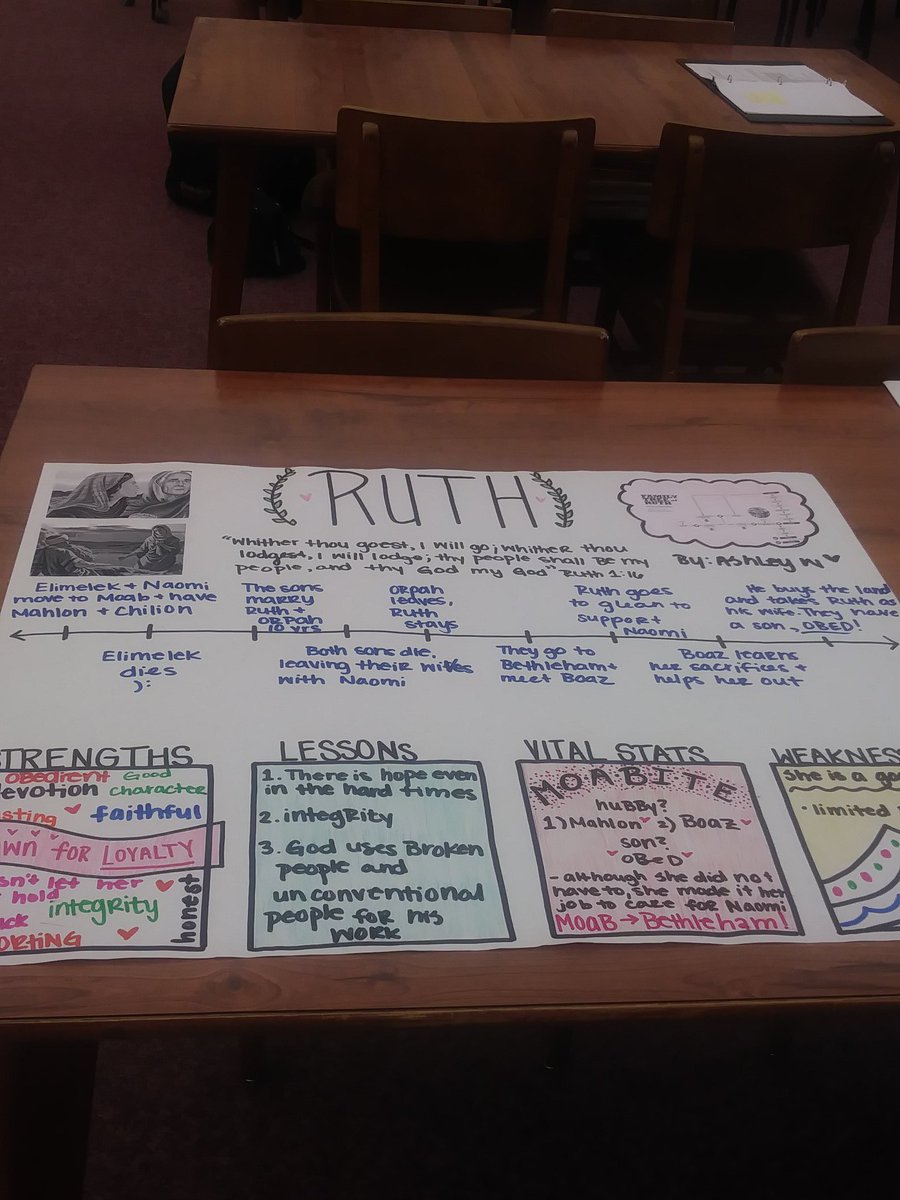 RUTH
"Whither thou goest, I will go; whither thou
lodgest, I will lodge; thy people shall be my
people, and thy God my God" Ruth 1:16
FAMILY
TREE OF
RUTH
By: Ashley W
Elimelek + Naomi
move to Moab + have
Mahlon + Chilion
The sons
marry
Ruth +
Orpah
10 yrs
Orpah
leaves,
Ruth
stays
Ruth goes
to glean to
support
Naomi
He buys the land
and takes Ruth as
his wife. They have
a son, OBED!
Elimelek
dies
):
Both sons die,
leaving their wives
with Naomi
They go to
Bethleham +
meet Boaz
Boaz learns
her sacrifices +
helps her out
TRENGTHS
obedient Good
evotion character
sting faithful
wn for LOYALTY
sn't let her
hold
ck integrity
orting
honest
LESSONS
1. There is hope even
in the hard times
2. integrity
3. God uses Broken
people and
unconventional
people for his
work
VITAL STATS
MOABITE
huBBy?
1) Mahlon 2) Boaz
son?
OBED
- although she did not
have to, she made it her
job to care for Naomi
MOAB → Bethleham!
WEAKNES
She is a go
· limited